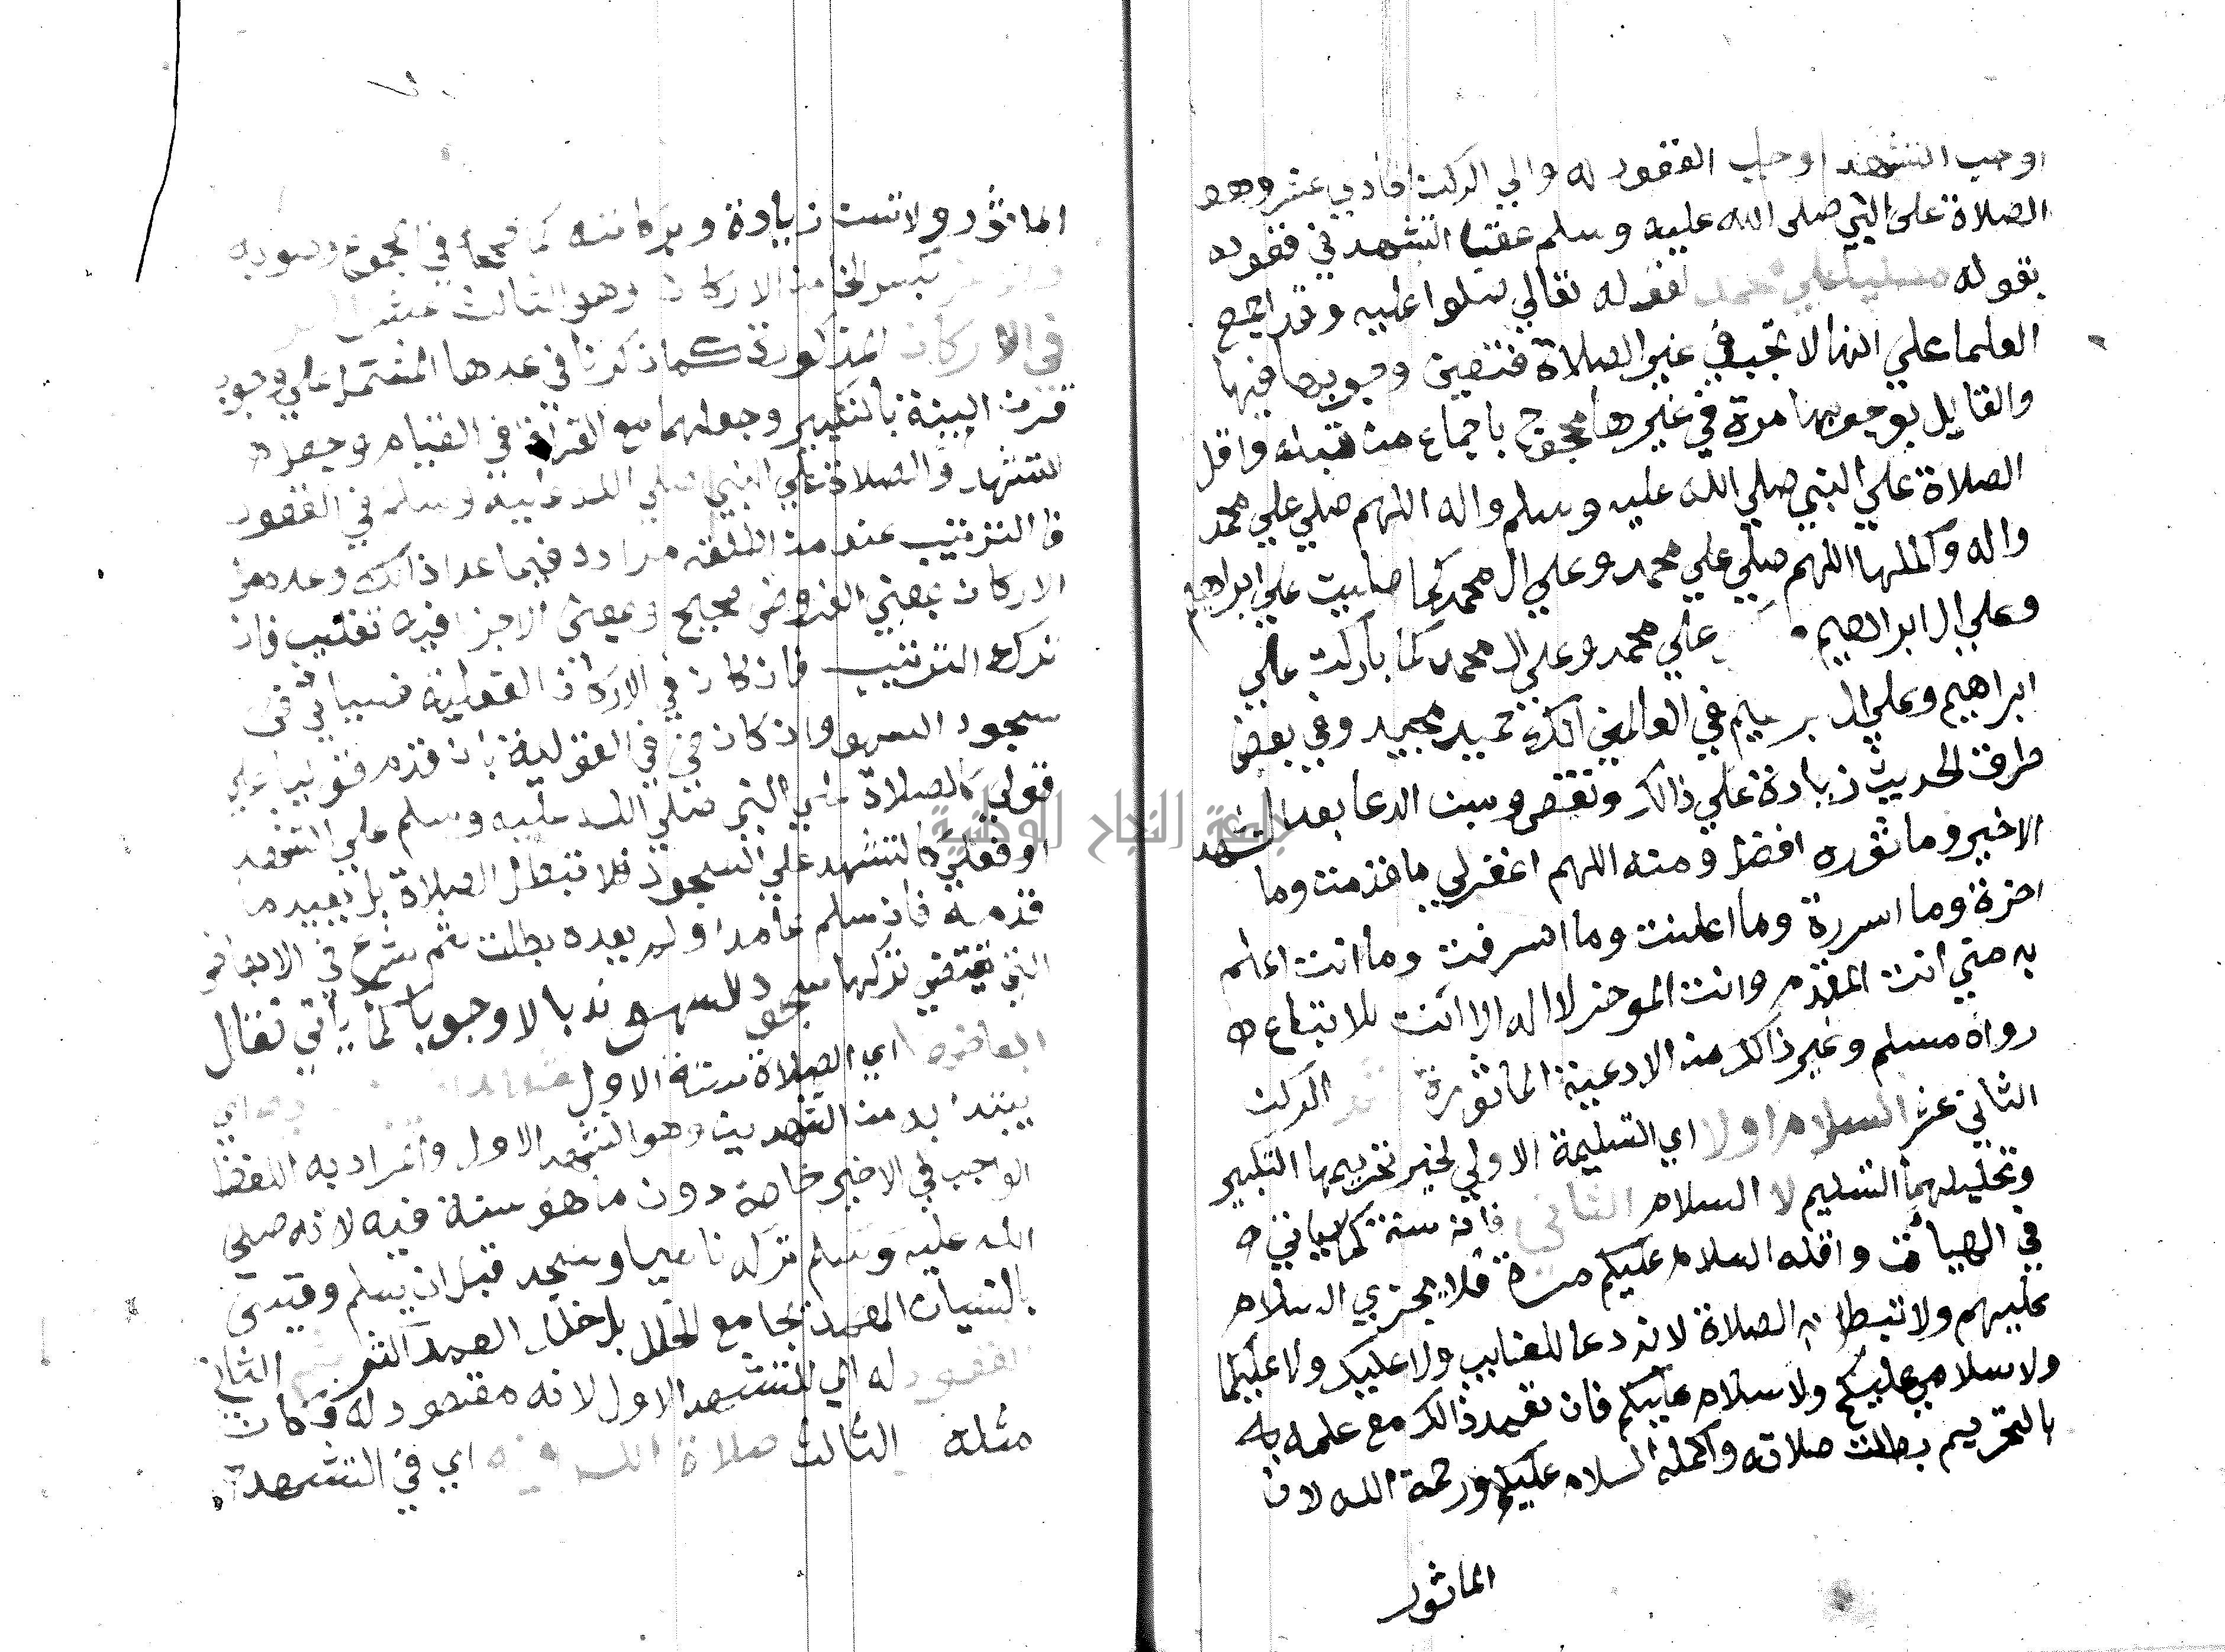 اوجب التشهد اوجب القعود له والي الركن الحادي عشر وهو
الصلاة علي النبي صلى الله عليه وسلم عقب التشهد في قعوده
بقوله مصليا علي محمد لقوله تعالي صلوا عليه وقد اجمع
العلما علي انها لا تجب في غير الصلاة فتعين وجوبها فيها
والقايل بوجوبها مرة في غيرها محجوج باجماع من قبله واقل
الصلاة علي النبي صلي الله عليه وسلم واله اللهم صلي علي محمد
واله واكملها اللهم صلي علي محمد وعلي ال محمد كما صليت علي ابراهيم
وعلي ال ابراهيم علي محمد وعلي ال محمد كما باركت علي
ابراهيم وعلي ال ابرهيم في العالمين انك حميد مجيد وفي بعض
طرق الحديث زيادة علي ذالك ونقص وسن الدعا بعد التشهد
الاخير وماثوره افضل ومنه اللهم اغفرلي ما قدمت وما
اخرة وما اسررة وما اعلنت وما اسرفت وما انت اعلم
به مني انت المقدم وانت الموخر لا اله الا انت للاتباع
رواه مسلم وغير ذالك من الادعية الماثورة الركن
الثاني عشر السلام اولا اي التسليمة الاولي لخبر تحريمها التكبير
وتحليلها التسليم لا السلام الثاني فانه سنة كما سياتي
في الهيأت واقله السلام عليكم مرة فلا يجزي السلام
عليهم ولا تبطل به الصلاة لانه دعا للغايب ولا عليك ولا عليكما
ولا سلامي عليكم ولا سلام عليكم فان تعمد ذالك مع علمه به
بالتحريم بطلت صلاته واكمله السلام عليكم ورحمة الله لان
الماثور
الماثور ولا تسن زيادة وبركاته كما صححه في المجموع وصوبه
الاركان وهو الثالث عشر
في الاركان المذكورة كما ذكرنا في عدها المشتمل علي وجوب
قرن النية بالتكبير وجعلهما مع القراة في القيام وجعل
التشهد والصلاة علي النبي صلي الله عليه وسلم في القعود
فالترتيب عند من اطلقه مراد فيما عدا ذالك وعده من
الاركان بمعني الفروض صحيح وبمعني الاجزا فيه تغليب فان
ترك الترتيب فان كان في الاركان الفعلية فسياتي في
سجود السهو وان كان في القولية بان قدم قوليا علي
قولي كالصلاة علي النبي صلي الله عليه وسلم علي التشهد
او فعلي كالتشهد علي السجود فلا تبطل الصلاة بل يعيد ما
قدمه فان سلم عامدا ولم يعده بطلت ثم شرع في الابعاض
التي يقتضي تركها سجود للسهو ندبا لا وجوبا كما يأتي فقال
ابعاضها اي الصلاة ستة الاول اي
يبتدا به من التشهدين وهو التشهد الاول والمراد به اللفظ
الواجب في الاخير خاصة دون ما هو سنة فيه لانه صلي
الله عليه وسلم تركه ناسيا وسجد قبل ان يسلم وقيس
بالنسيان العمد بجامع الخلل بل خلل العمد اكثر الثاني
القعود له اي للتشهد الاول لانه مقصود له فكان
مثله الثالث صلاة اي في التشهد
جامعة النجاح الوطنية